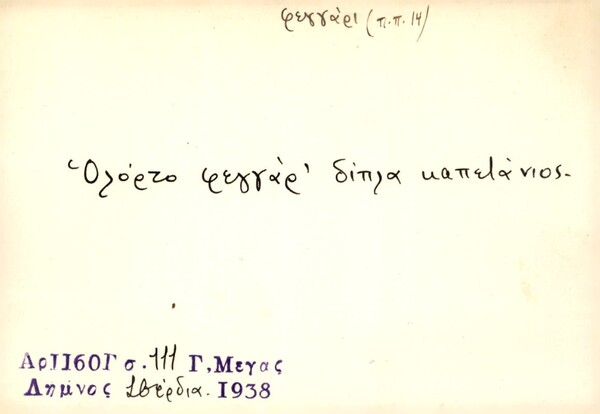 φεγγάρι (π.π. 14)
Ὁλόρτο φεγγάρ' δίπλα καπετάνιος.
Αρ 1160Γ σ. 111 Γ. Μεγας
Λημνος Σβέρδια. 1938